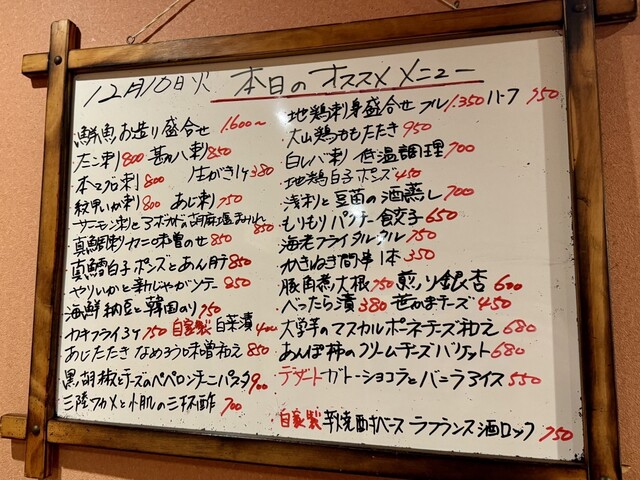 12月10日火 本日のオススメメニュー
鮮魚お造り盛合せ 1.600〜
たこ刺 800 甚八刺 850
本マグロ刺 800 生がき1ケ 380
紋甲いか刺 800 あじ刺 750
サーモン刺とアボカドの胡麻塩まみれ 850
真鯛刺カニ味噌のせ 850
真鱈白子ポンズとあん肝 850
やりいかと新じゃがソテー 850
海鮮納豆と韓国のり 750
カキフライ3ケ 750 自家製白菜漬 400
あじたたきなめろう味噌和え 850
黒胡椒とチーズのペペロンチーニパスタ 900
三陸フカメと小肌の三杯酢 700
地鶏刺身盛合せ フル 1.350 ハーフ 950
大山鶏ももたたき 950
白レバ刺 低温調理 700
地鶏白子ポンズ 450
浅利と豆苗の酒蒸し 700
もりもりパクチー餃子 650
海老フライタルタル 750
かきねぎ間串1本 350
豚角煮大根 750 煎り銀杏 600
べったら漬 380 笹かまチーズ 450
大学芋のマスカルポーネチーズ和え 680
あんぽ柿のクリームチーズバゲット 680
デザート ガトーショコラとバニラアイス 550
自家製 芋焼酎ベース ラフランス酒ロック 750